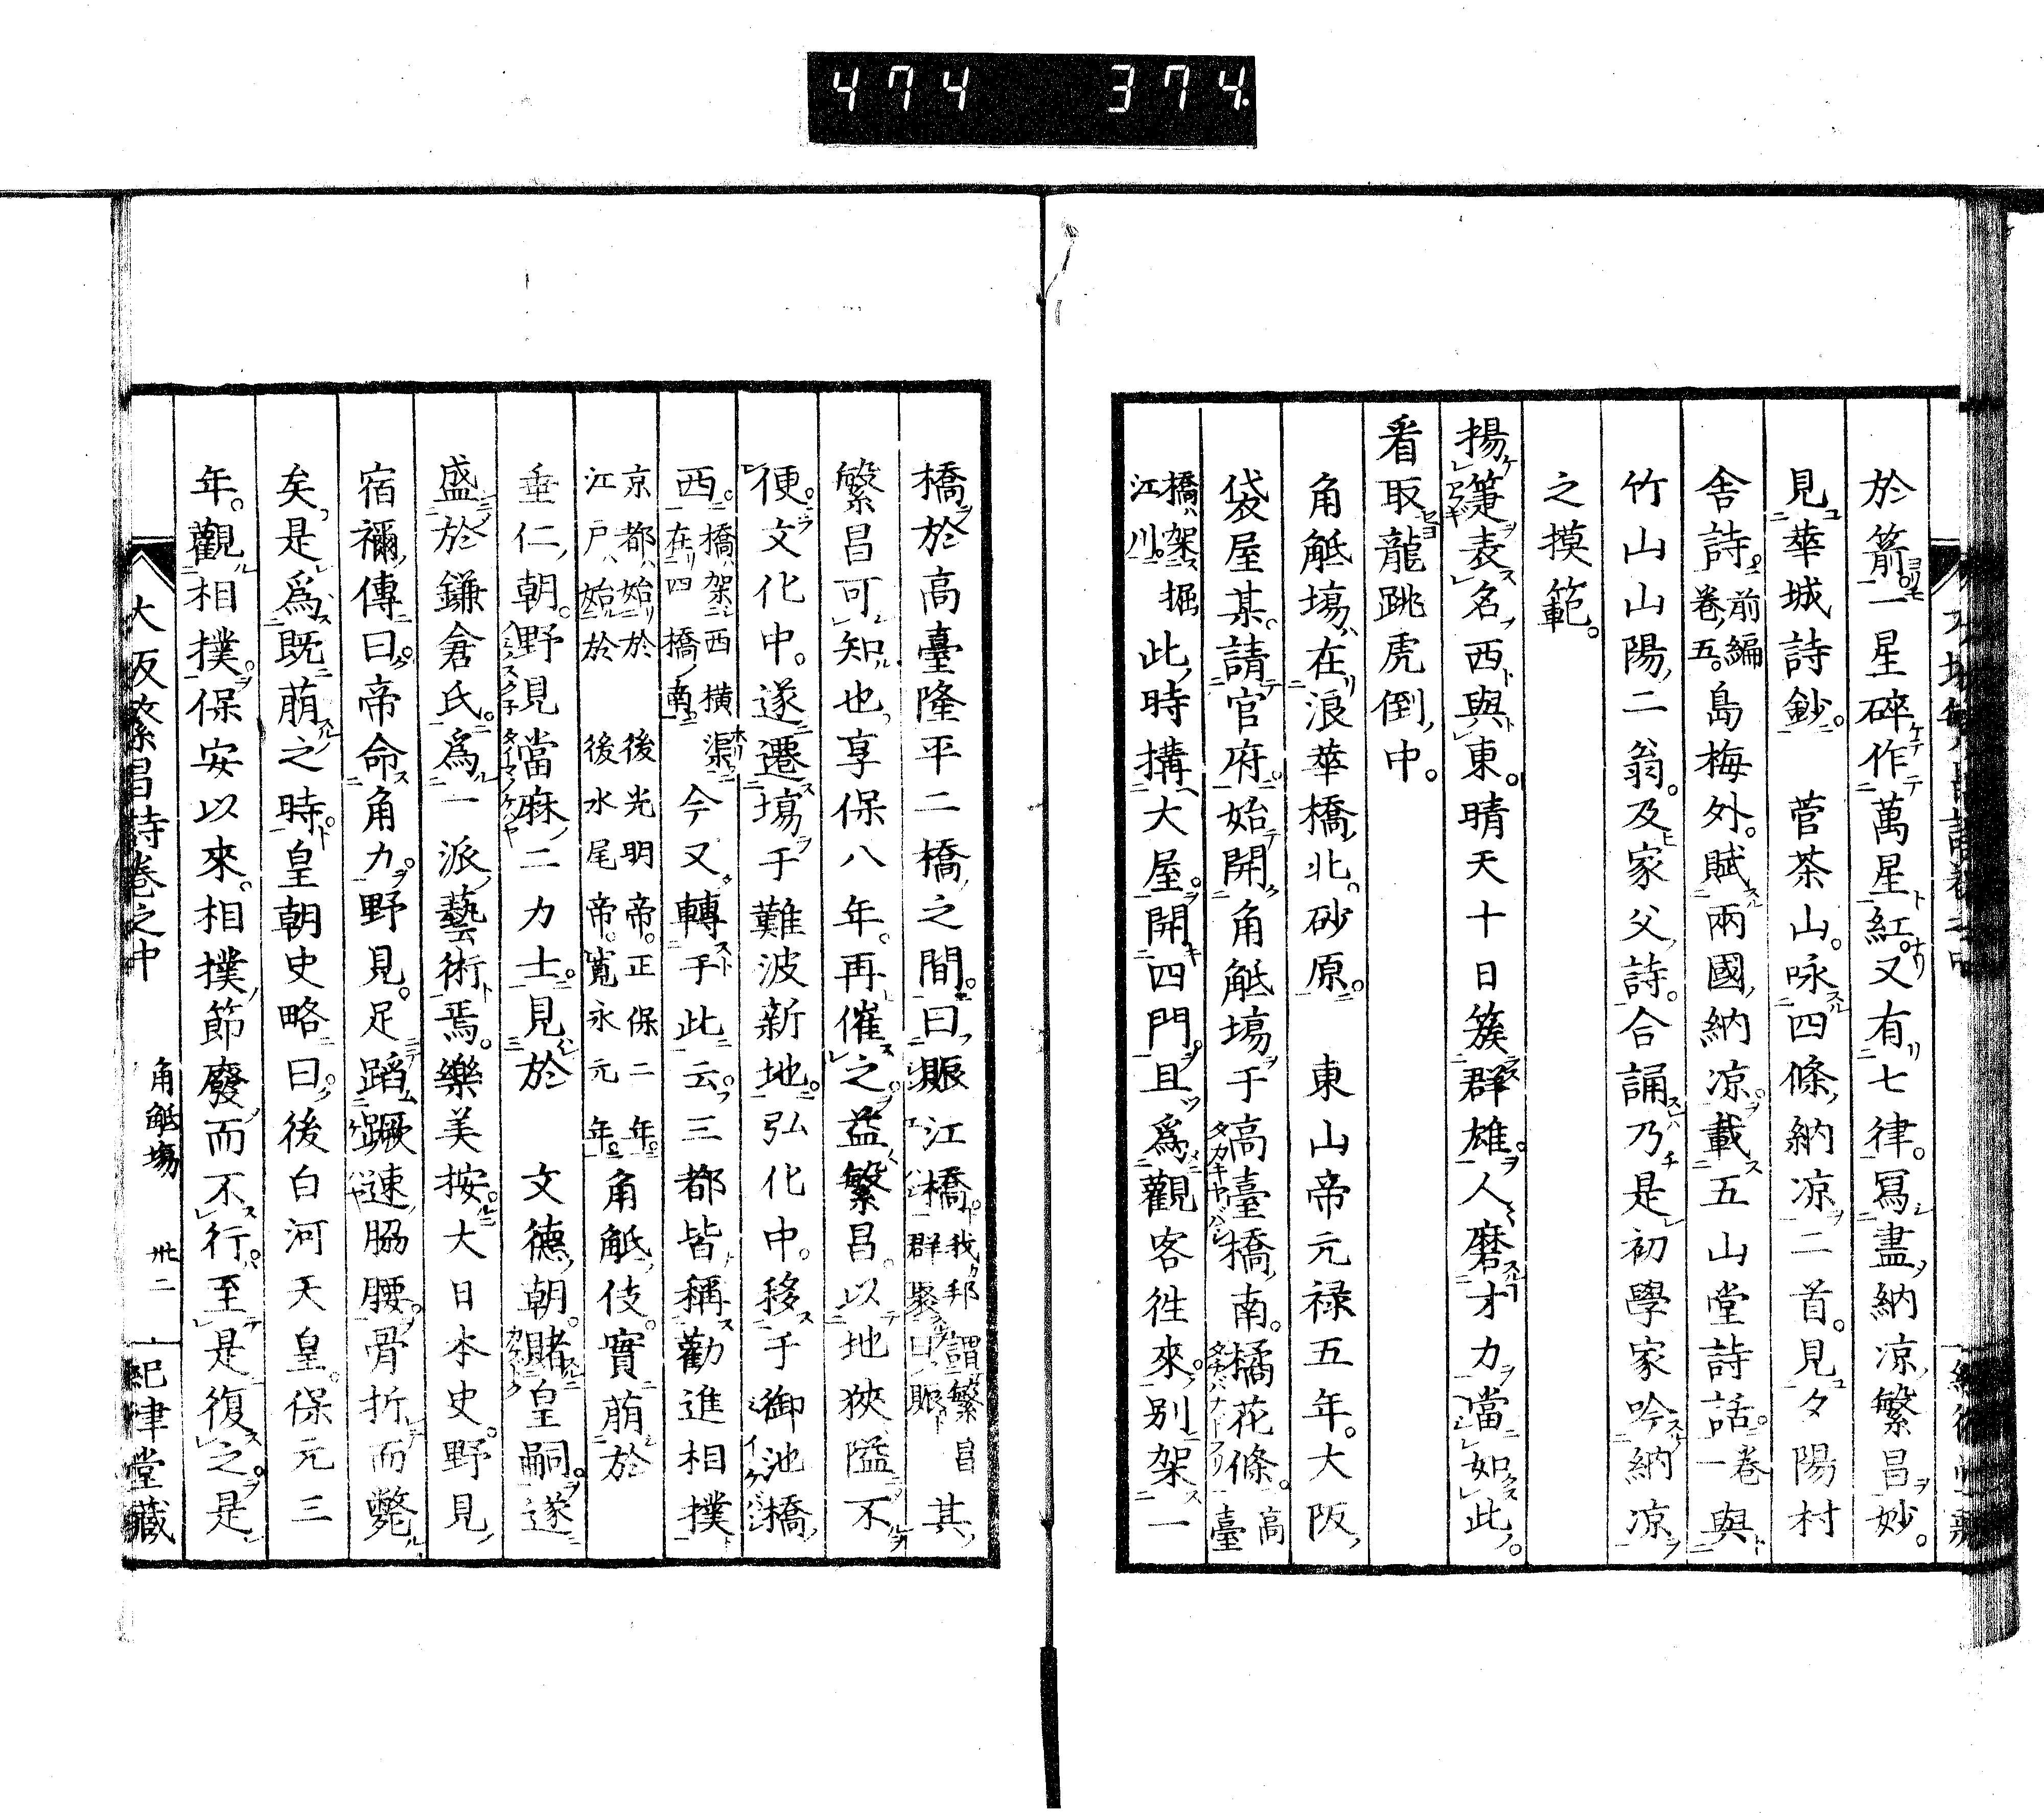 474 374.
於箭。一星碎作萬星紅。又有七律。寫盡納凉繁昌妙。
見華城詩鈔。 菅茶山。咏四條納凉二首。見夕陽村
舍詩。前編卷五。島梅外。賦兩國納凉。載五山堂詩話。卷一與
竹山山陽二翁。及家父詩。合誦乃是初學家吟納凉
之摸範。
揚箑表名西與東。晴天十日簇群雄。人々磨才力當如此。
看取龍跳虎倒中。
角觝場在浪華橋北砂原。 東山帝元禄五年。大阪
袋屋某。請官府。始開角觝場于高臺橋南。橘花條。高臺
橋架江川。堀此時搆大屋。開四門。且爲觀客徃來。別架一
橋於高臺隆平二橋之間。曰賑江橋。我邦謂繁昌群聚曰賑其
繁昌可知也。享保八年。再催之。益繁昌。以地狹隘不
便。文化中。遂遷場于難波新地。弘化中。移于御池橋
西。橋架西橫渠在四橋南今又轉于此云。三都皆稱勸進相撲
京都始於後光明帝。正保二年。江戶始於後水尾帝。寬永元年。角觝伎。實萠於
垂仁朝。野見當麻二力士。見於 文德朝。賭皇嗣。遂
盛於鎌倉氏。爲一派藝術焉。樂美按。大日本史。野見
宿禰傳曰。帝命角力。野見。足蹈蹶速脇腰。骨折而斃
矣是爲既萠之時。皇朝史略曰。後白河天皇。保元三
年。觀相撲。保安以來。相撲節廢而不行。至是復之。是
大阪繁昌詩卷之中 角觝場 卅二 紀津堂藏